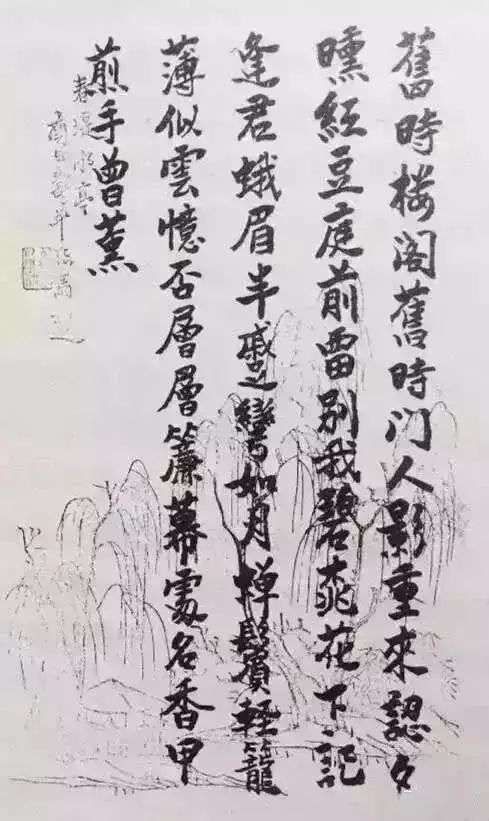 舊時楼阁舊時门人影重來認夕
曛紅豆庭前留别我碧桃花下記
逢君蛾眉半蹙彎如月蟬鬢輕籠
薄似雲憶否層層簾幕處名香甲
煎手曾薰
春
亭